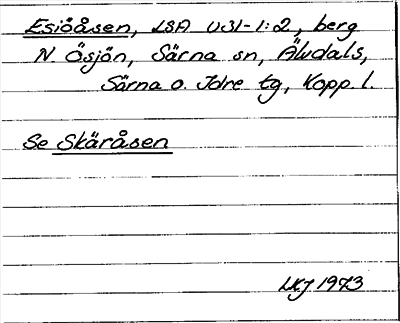 Esiöåsen, LSA U31-1:2, berg
N. Ösjön, Särna sn, Älvdals,
Särna o. Idre tg, Kopp. l.
Se Skäråsen
LKJ 1973